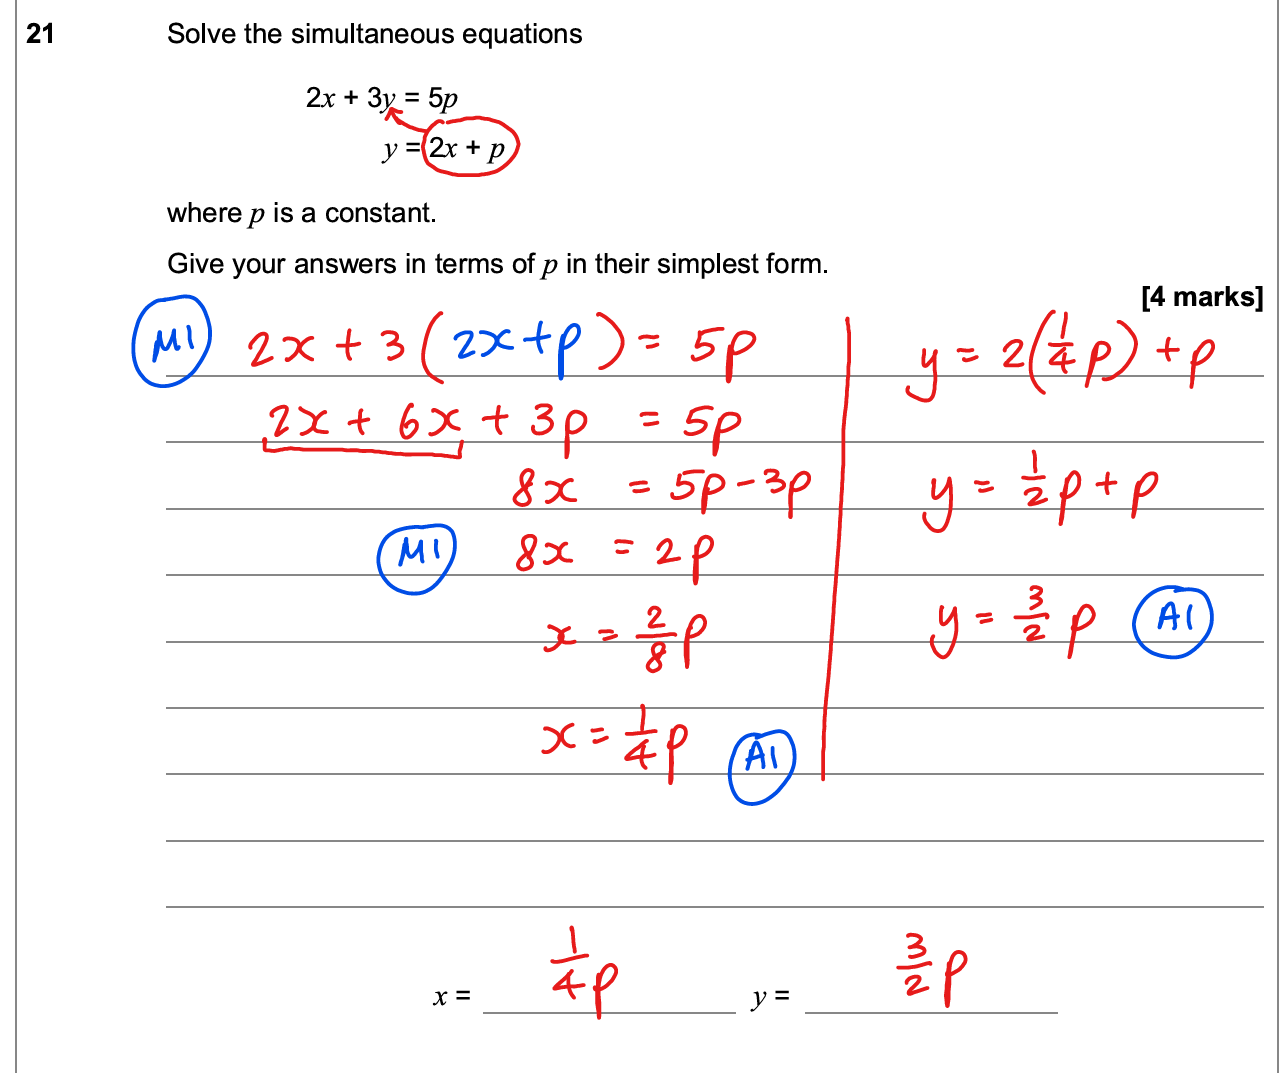 21 Solve the simultaneous equations
2x + 3y = 5p
y = 2x + p
where p is a constant.
Give your answers in terms of p in their simplest form.
[4 marks]
M1 2x + 3(2x+p) = 5p
2x + 6x + 3p = 5p
8x = 5p - 3p
M1 8x = 2p
x = 2/8 p
x = 1/4 p A1
y = 2(1/4 p) + p
y = 1/2 p + p
y = 3/2 p A1
x = 1/4 p y = 3/2 p